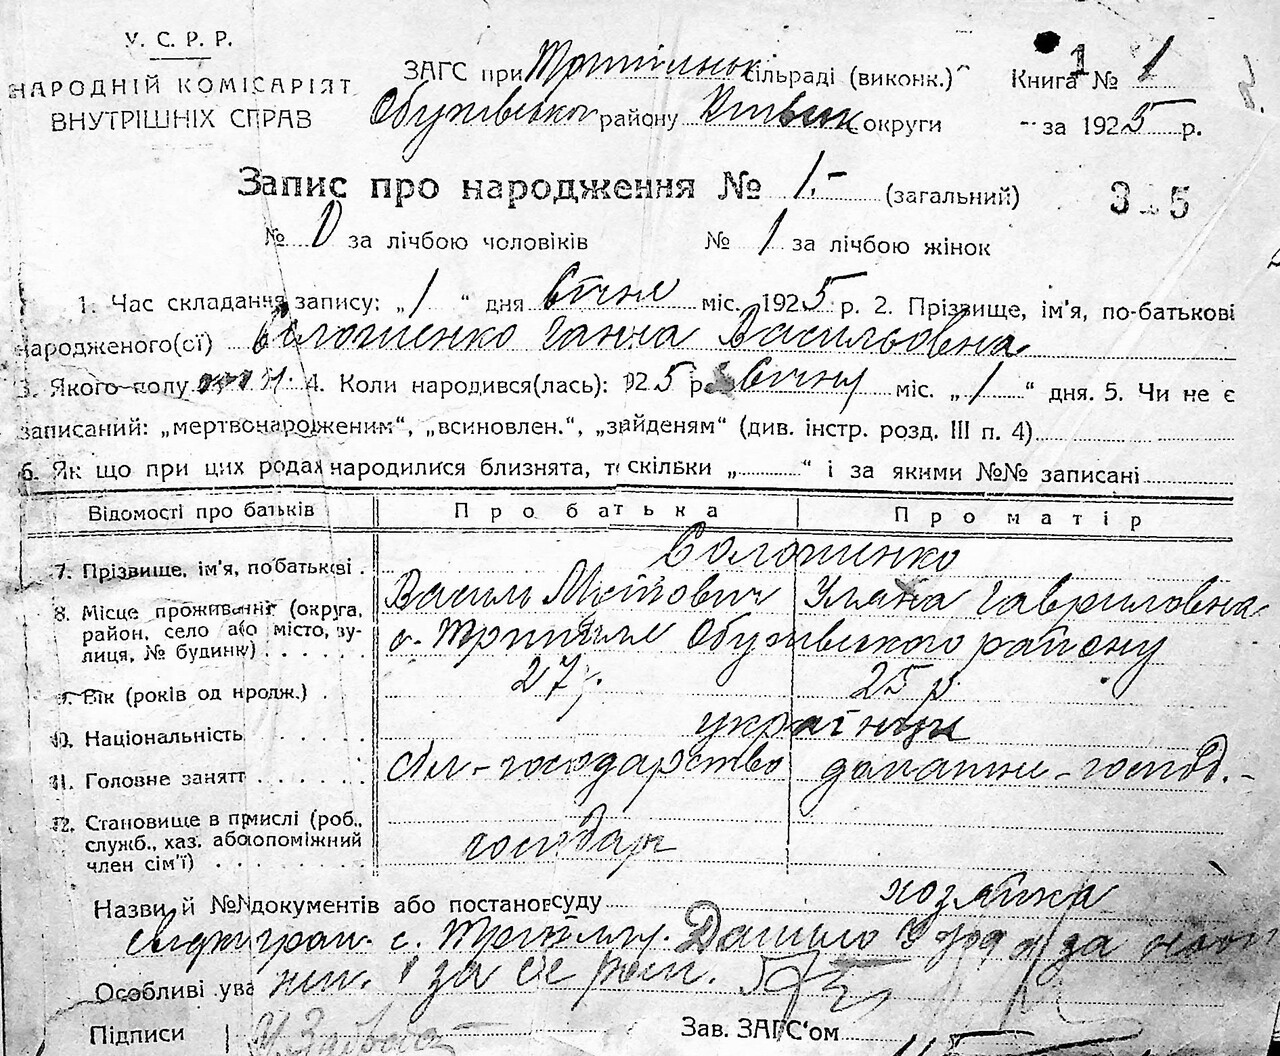 У. С. Р. Р.
НАРОДНІЙ КОМІСАРІЯТ
ВНУТРІШНІХ СПРАВ
ЗАГС при Трипільськ сільраді (виконк.) Книга № 1 1
Обухівського району Київськ округи за 1925 р.
Запис про народження № 1.- (загальний) 315
№ 0 за лічбою чоловіків № 1 за лічбою жінок
1. Час складання запису: „1“ дня Січня міс. 1925 р. 2. Прізвище, ім'я, по-батькові
народженого(ої) Солошенко Ганна Васильовна
3. Якого полу 4. Коли народився(лась): 1925 р. Січня міс. „1“ дня. 5. Чи не є
записаний: „мертвонародженим“, „всиновлен.“, „знайденям“ (див. інстр. розд. III п. 4)
6. Як що при цих родах народилися близнята, то скільки „ “ і за якими №№ записані
Відомості про батьків Про батька Про матір
7. Прізвище, ім'я, по-батькові Солошенко
Василь Уляна Гавриловна
8. Місце проживання (округа,
район, село або місто, ву-
лиця, № будинку)
с. Трипілля Обухівського району
9. Вік (років од нродж.) 27 25 р.
10. Національність українці
11. Головне заняття господарство домашнє-господ.-
12. Становище в промислі (роб.,
служб., хаз. або допоміжний
член сім'ї) господарь
хозяйка
Назви й №№ документів або постанов суду
с. Данило за
Особливі ува за
Підписи Зав. ЗАГС'ом